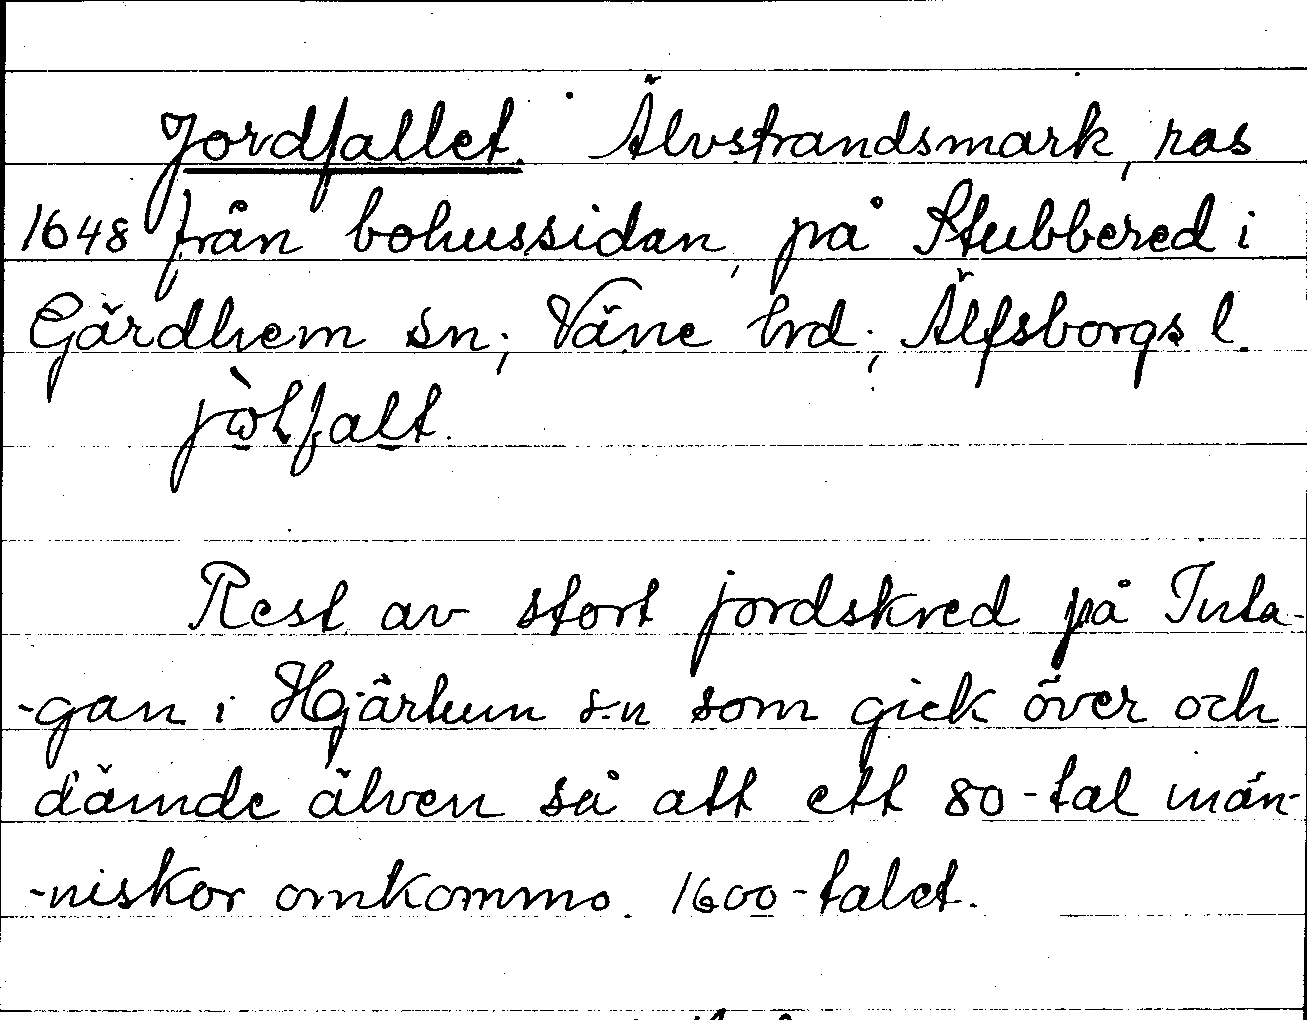 Jordfallet. Älvstrandsmark, ras
1648 från bohussidan, på Stubbered i
Gärdhem sn; Väne hd; Älfsborgs l.
Rest av stort jordskred på Inta-
-gan i Hjärtum s:n som gick över och
dämde älven så att ett 80-tal män-
-niskor omkommo. 1600-talet.